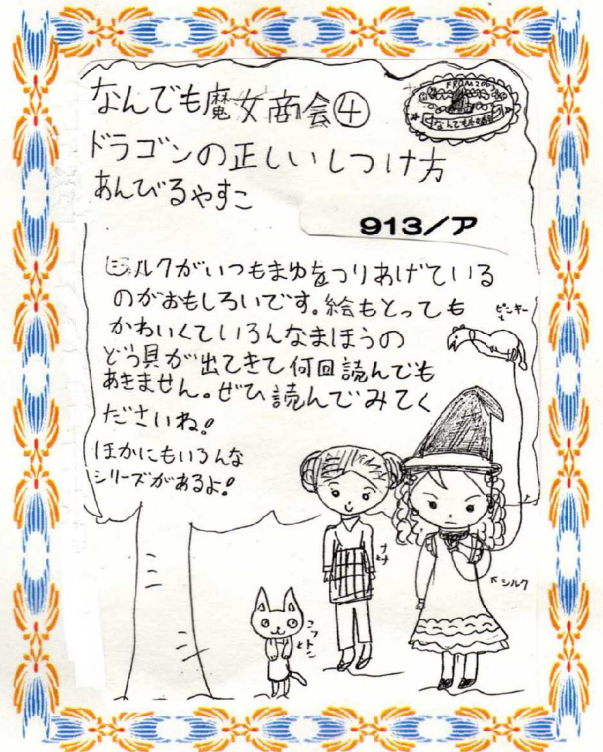 なんでも魔女商会④
ドラゴンの正しいしつけ方
あんびるやすこ
913/ア
シルクがいつもまゆをつりあげている
のがおもしろいです。絵もとっても
かわいくていろんなまほうの
どう具が出てきて何回読んでも
あきません。ぜひ読んでみてく
ださいね!
ほかにもいろんな
シリーズがあるよ!
ピンキー
ナナ
シルク
コットン